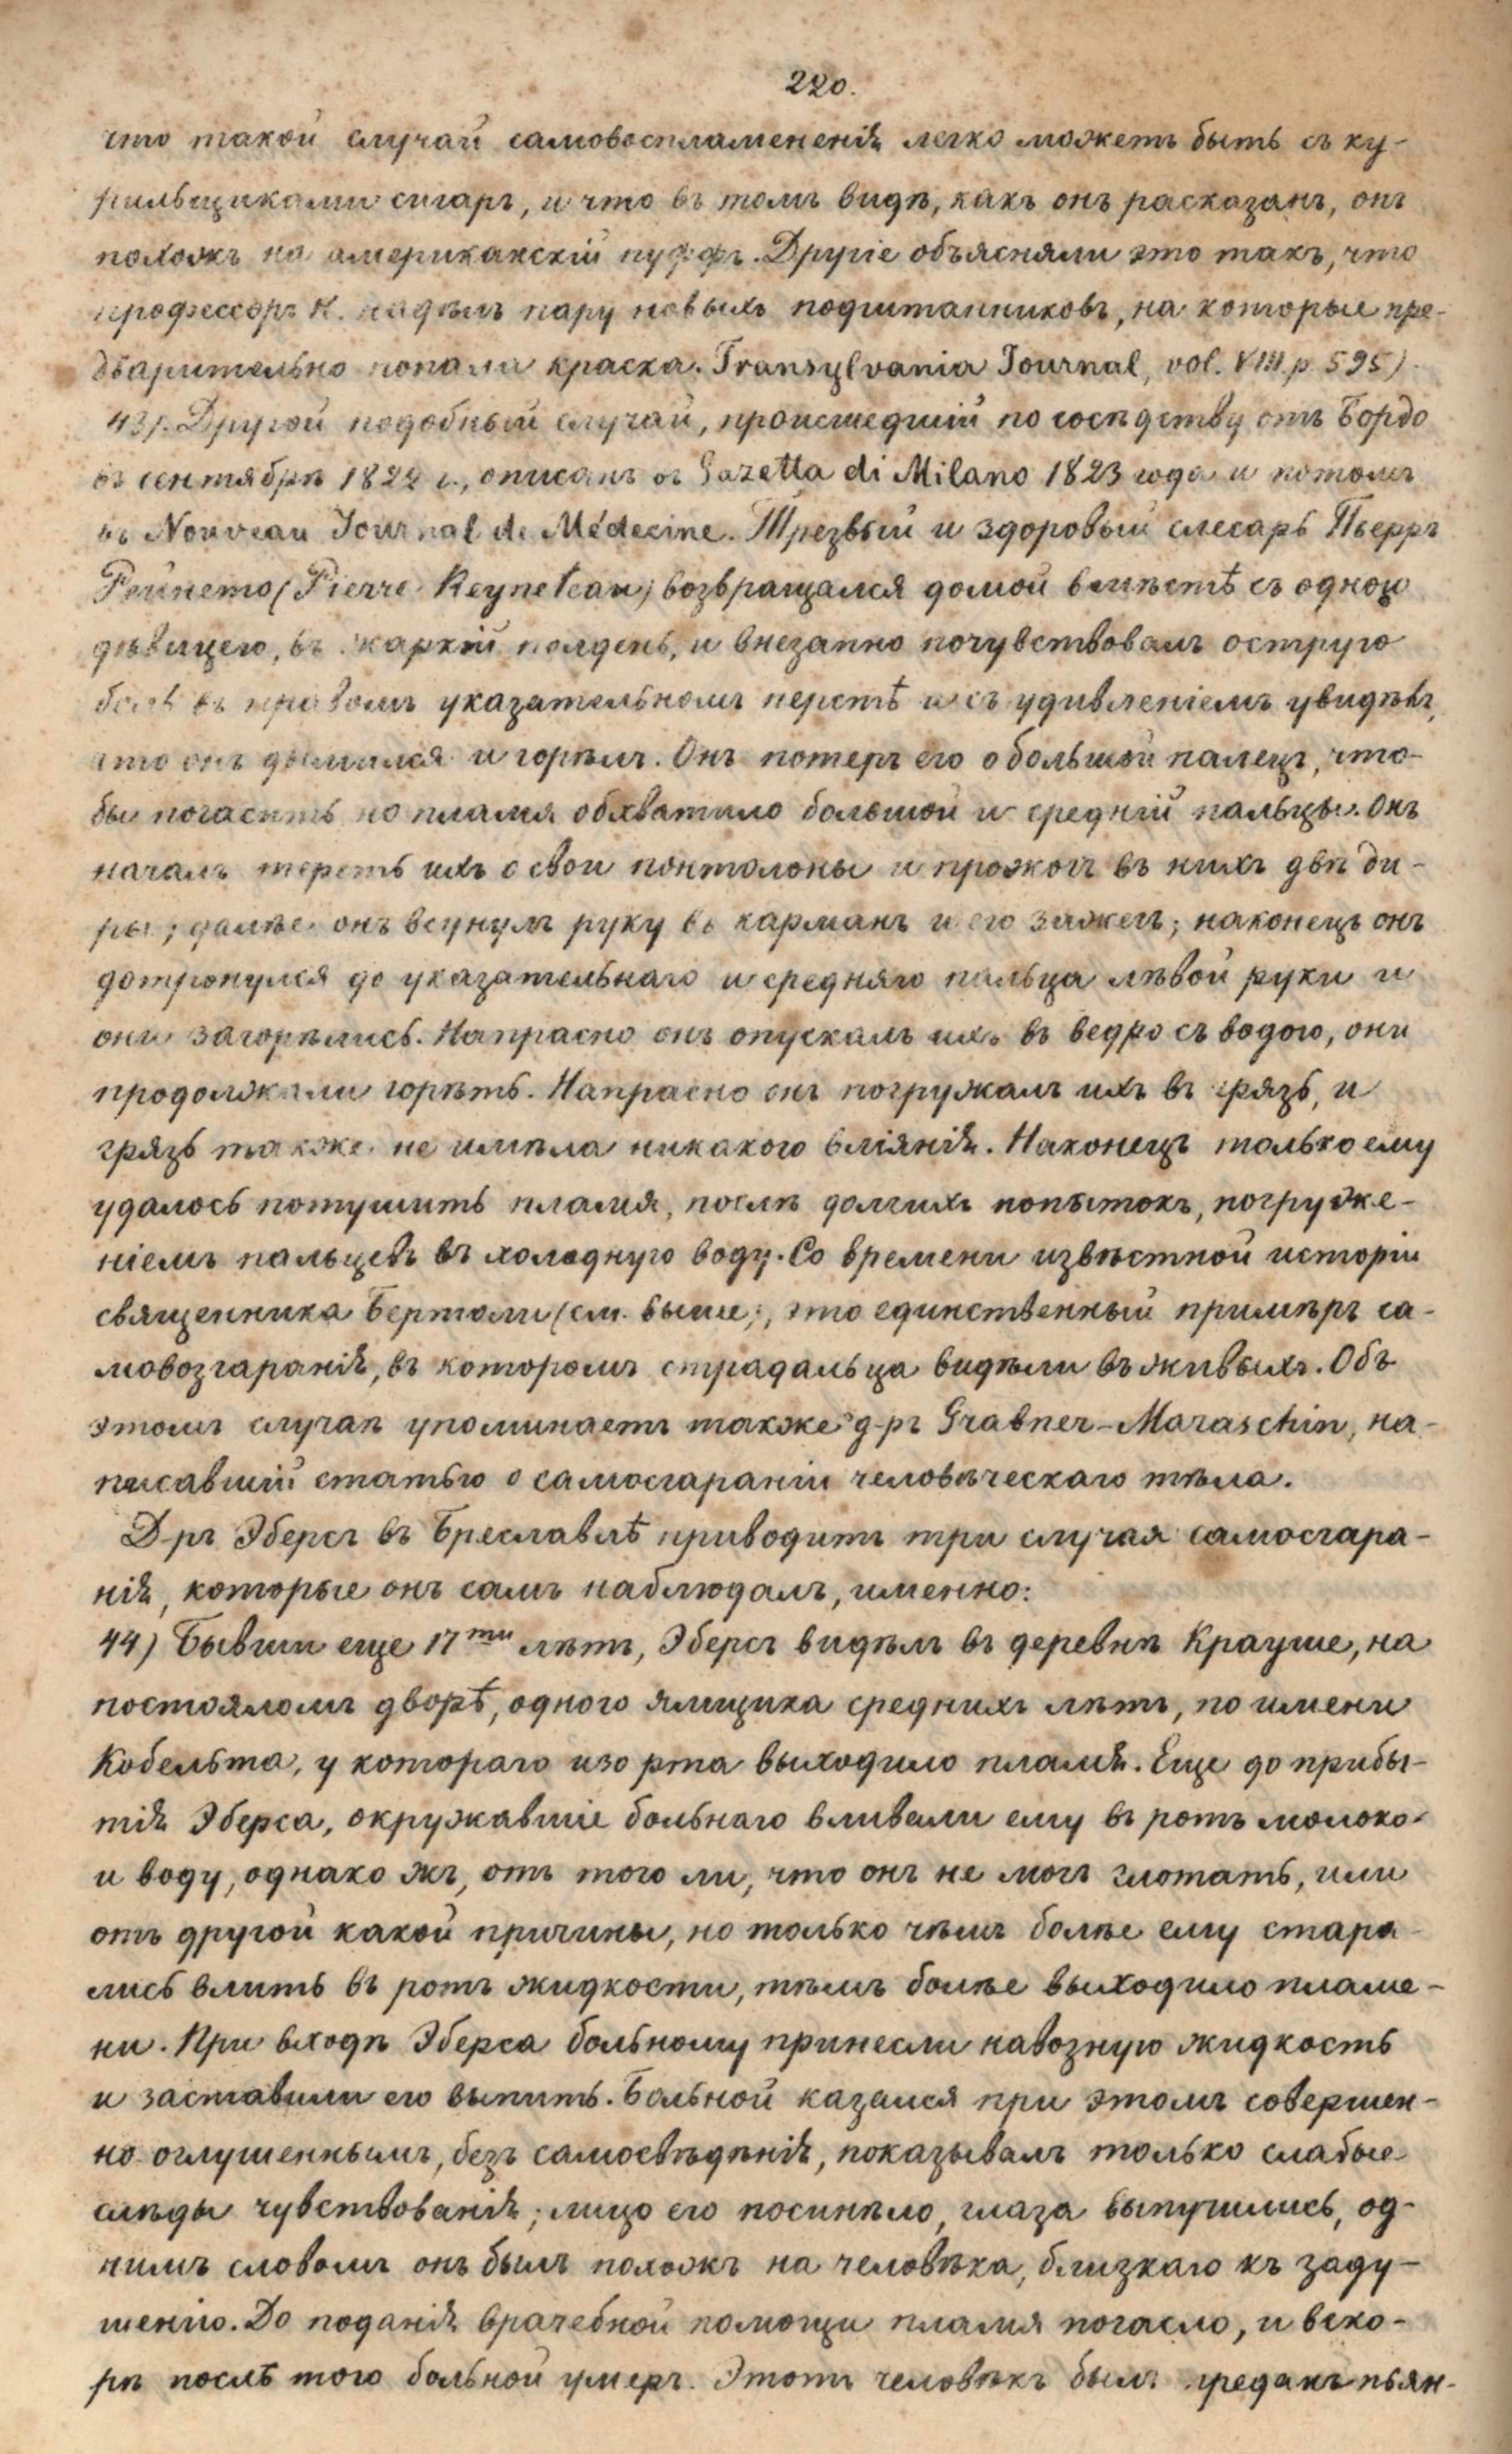 220.
что такой случай самовоспламененія легко можетъ быть съ ку-
рильщиками сигаръ, и что въ томъ видѣ, какъ онъ расказанъ, онъ
похожъ на американскій пуффъ. Другіе объясняли это такъ, что
профессоръ Н. надѣлъ пару новыхъ подштанниковъ, на которые пре-
дварительно попала краска. Transylvania Journal, vol. VIII p. 595).
43). Другой подобный случай, происшедшій по сосѣдству отъ Бордо
въ сентябрѣ 1822 г., описанъ въ Gazetta di Milano 1823 года и потомъ
въ Nouveau Journal de Médecine. Трезвый и здоровый слесарь Пьерръ
Рейнето (Pierre Reyneteau) возвращался домой вмѣстѣ съ одною
дѣвицею, въ жаркій полдень, и внезапно почувствовалъ острую
боль въ правомъ указательномъ перстѣ и съ удивленіемъ увидѣвъ,
что онъ дымился и горѣлъ. Онъ потеръ его о большой палецъ, что-
бы погасить но пламя обхватило большой и средній пальцы. Онъ
началъ тереть ихъ о свои понталоны и прожогъ въ нихъ двѣ ди-
ры; далѣе онъ всунулъ руку въ карманъ и его зажегъ; наконецъ онъ
дотронулся до указательнаго и средняго пальца лѣвой руки и
они загорѣлись. Напрасно онъ опускалъ ихъ въ ведро съ водою, они
продолжали горѣть. Напрасно онъ погружалъ ихъ въ грязь, и
грязь также не имѣла никакого вліянія. Наконецъ только ему
удалось потушить пламя, послѣ долгихъ попытокъ, погруже-
ніемъ пальцевъ въ холодную воду. Со времени извѣстной исторіи
священника Бертоли (см. выше), это единственный примѣръ са-
мовозгаранія, въ которомъ страдальца видѣли въ живыхъ. Объ
этомъ случаѣ упоминаетъ также д-ръ Grabner-Maraschin, на-
писавшій статью о самосгараніи человѣческаго тѣла.
Д-ръ Эберсъ въ Бреславлѣ приводитъ три случая самосгара-
нія, которые онъ самъ наблюдалъ, именно:
44) Бывши еще 17ти лѣтъ, Эберсъ видѣлъ въ деревнѣ Крауше, на
постояломъ дворѣ, одного ямщика среднихъ лѣтъ, по имени
Кобельта, у котораго изо рта выходило пламя. Еще до прибы-
тія Эберса, окружавшіе больнаго вливали ему въ ротъ молоко
и воду, однако жъ, отъ того ли, что онъ не могъ глотать, или
отъ другой какой причины, но только чѣмъ болѣе ему стара-
лись влить въ ротъ жидкости, тѣмъ болѣе выходило пламе-
ни. При входѣ Эберса больному принесли навозную жидкость
и заставили его выпить. Больной казался при этомъ совершен-
но оглушеннымъ, безъ самосвѣдѣнія, показывалъ только слабые
слѣды чувствованія; лицо его посинѣло, глаза выпучились, од-
нимъ словомъ онъ былъ похожъ на человѣка, близкаго къ заду-
шенію. До поданія врачебной помощи пламя погасло, и вско-
рѣ послѣ того больной умеръ. Этотъ человѣкъ былъ преданъ пьян-